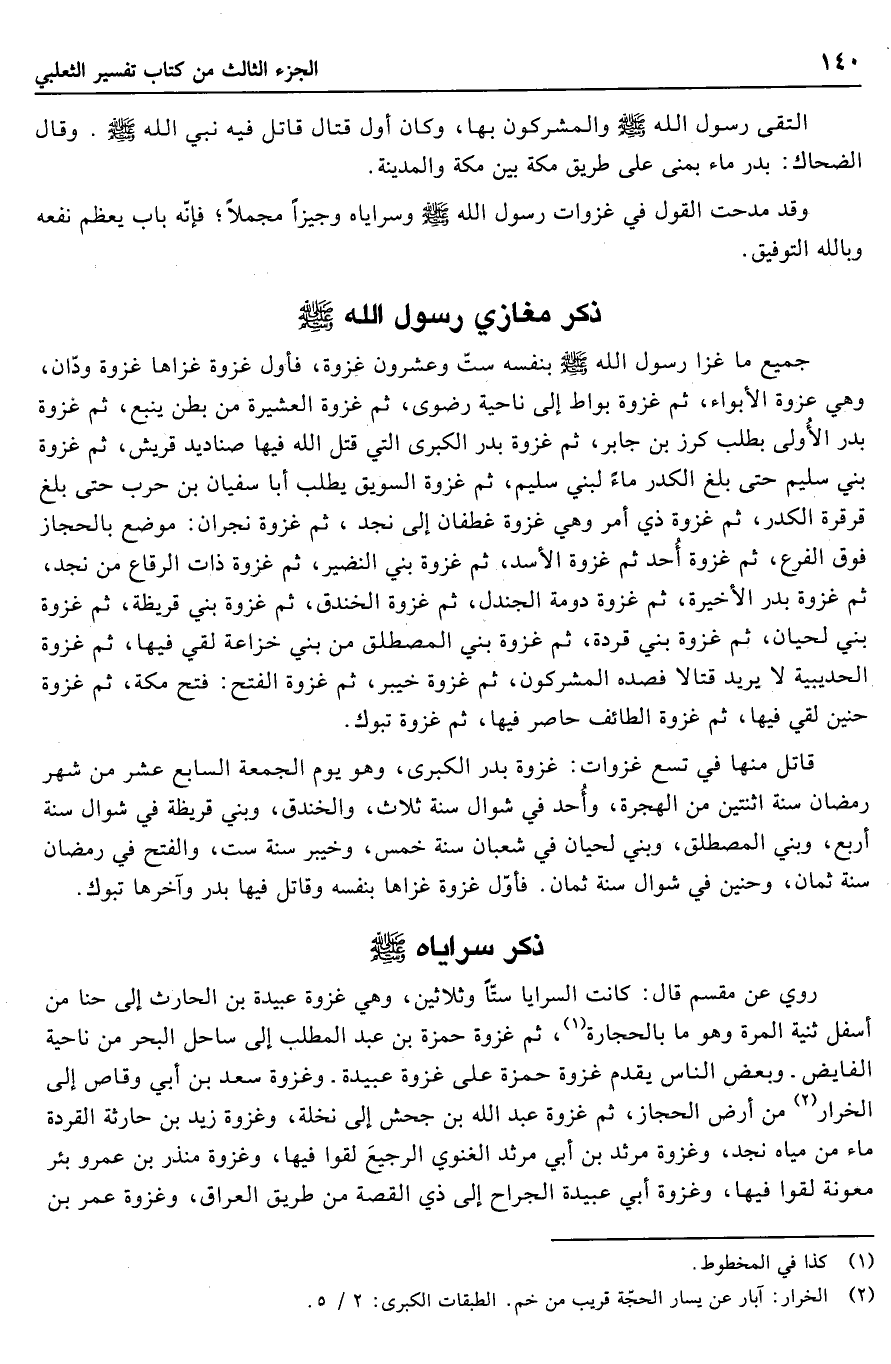 ١٤٠
الجزء الثالث من كتاب تفسير الثعلبي
التقى رسول الله ﷺ والمشركون بها، وكان أول قتال قاتل فيه نبي الله ﷺ . وقال
الضحاك: بدر ماء بمنى على طريق مكة بين مكة والمدينة.
وقد مدحت القول في غزوات رسول الله ﷺ وسراياه وجيزاً مجملاً؛ فإنّه باب يعظم نفعه
وبالله التوفيق.
ذكر مغازي رسول الله ﷺ
جميع ما غزا رسول الله ﷺ بنفسه ستّ وعشرون غزوة، فأول غزوة غزاها غزوة ودّان،
وهي عزوة الأبواء، ثم غزوة بواط إلى ناحية رضوى، ثم غزوة العشيرة من بطن ينبع، ثم غزوة
بدر الأُولى بطلب كرز بن جابر، ثم غزوة بدر الكبرى التي قتل الله فيها صناديد قريش، ثم غزوة
بني سليم حتى بلغ الكدر ماءً لبني سليم، ثم غزوة السويق يطلب أبا سفيان بن حرب حتى بلغ
قرقرة الكدر، ثم غزوة ذي أمر وهي غزوة غطفان إلى نجد ، ثم غزوة نجران: موضع بالحجاز
فوق الفرع، ثم غزوة أُحد ثم غزوة الأسد، ثم غزوة بني النضير، ثم غزوة ذات الرقاع من نجد،
ثم غزوة بدر الأخيرة، ثم غزوة دومة الجندل، ثم غزوة الخندق، ثم غزوة بني قريظة، ثم غزوة
بني لحيان، ثم غزوة بني قردة، ثم غزوة بني المصطلق من بني خزاعة لقي فيها، ثم غزوة
الحديبية لا يريد قتالا فصده المشركون، ثم غزوة خيبر، ثم غزوة الفتح: فتح مكة، ثم غزوة
حنين لقي فيها، ثم غزوة الطائف حاصر فيها، ثم غزوة تبوك.
قاتل منها في تسع غزوات: غزوة بدر الكبرى، وهو يوم الجمعة السابع عشر من شهر
رمضان سنة اثنتين من الهجرة، وأُحد في شوال سنة ثلاث، والخندق، وبني قريظة في شوال سنة
أربع، وبني المصطلق، وبني لحيان في شعبان سنة خمس، وخيبر سنة ست، والفتح في رمضان
سنة ثمان، وحنين في شوال سنة ثمان. فأوّل غزوة غزاها بنفسه وقاتل فيها بدر وآخرها تبوك.
ذكر سراياه ﷺ
روي عن مقسم قال: كانت السرايا ستّاً وثلاثين، وهي غزوة عبيدة بن الحارث إلى حنا من
أسفل ثنية المرة وهو ما بالحجارة(١)، ثم غزوة حمزة بن عبد المطلب إلى ساحل البحر من ناحية
الفايض. وبعض الناس يقدم غزوة حمزة على غزوة عبيدة. وغزوة سعد بن أبي وقاص إلى
الخرار(٢) من أرض الحجاز، ثم غزوة عبد الله بن جحش إلى نخلة، وغزوة زيد بن حارثة القردة
ماء من مياه نجد، وغزوة مرثد بن أبي مرثد الغنوي الرجيعَ لقوا فيها، وغزوة منذر بن عمرو بئر
معونة لقوا فيها، وغزوة أبي عبيدة الجراح إلى ذي القصة من طريق العراق، وغزوة عمر بن
(١) كذا في المخطوط.
(٢) الخرار: آبار عن يسار الحجّة قريب من خم. الطبقات الكبرى: ٢ / ٥.